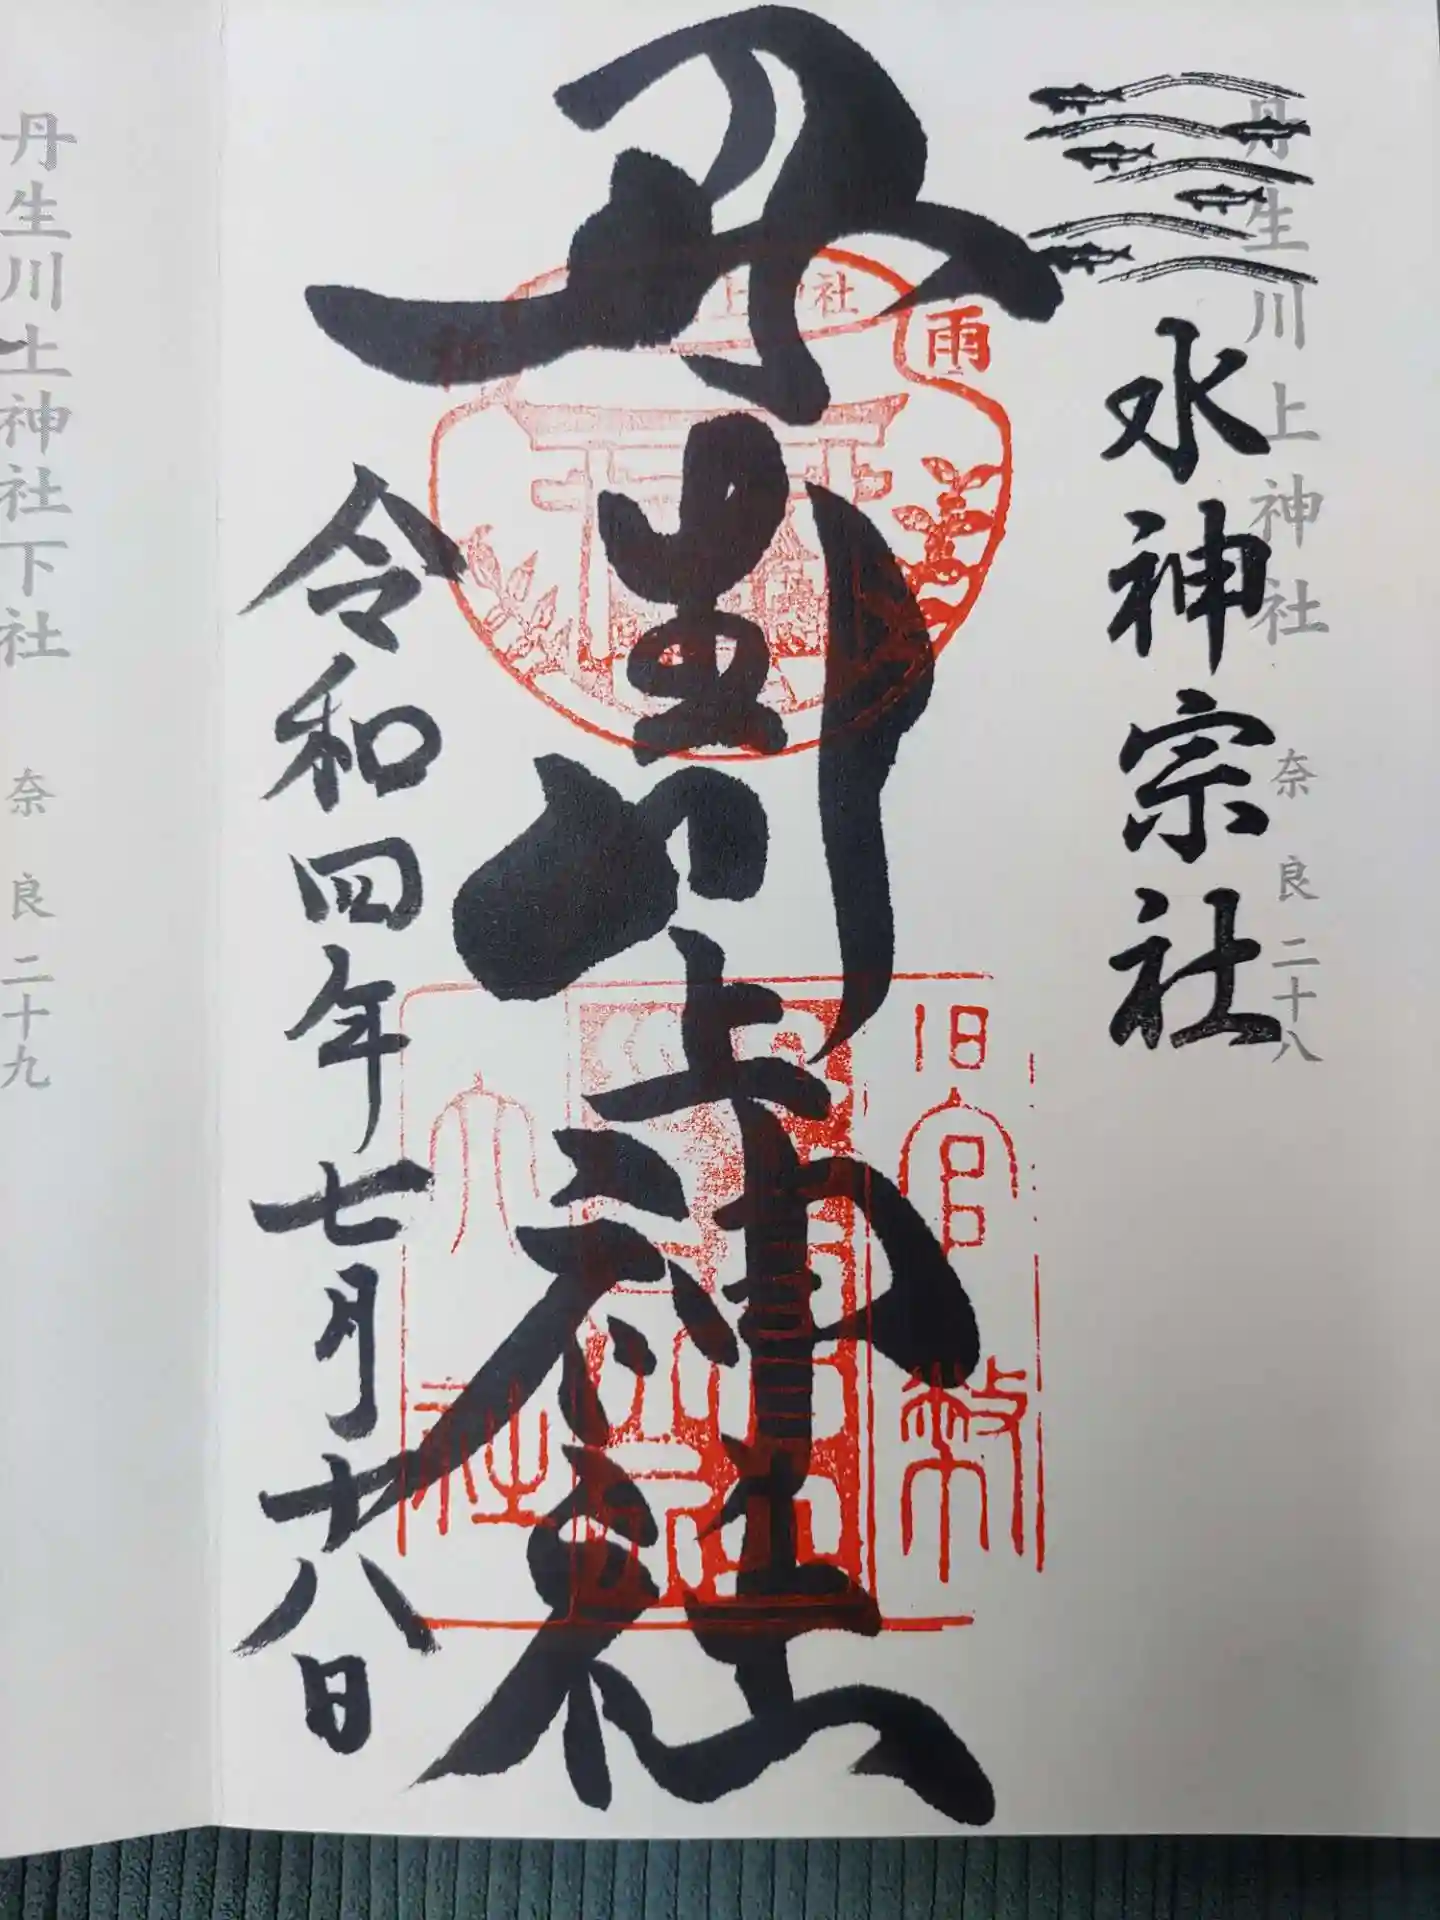 丹生川上神社 奈良二十八
水神宗社
丹生川上神社
雨
上
社
旧官幣
大社
令和四年七月十八日
丹生川上神社下社 奈良二十九